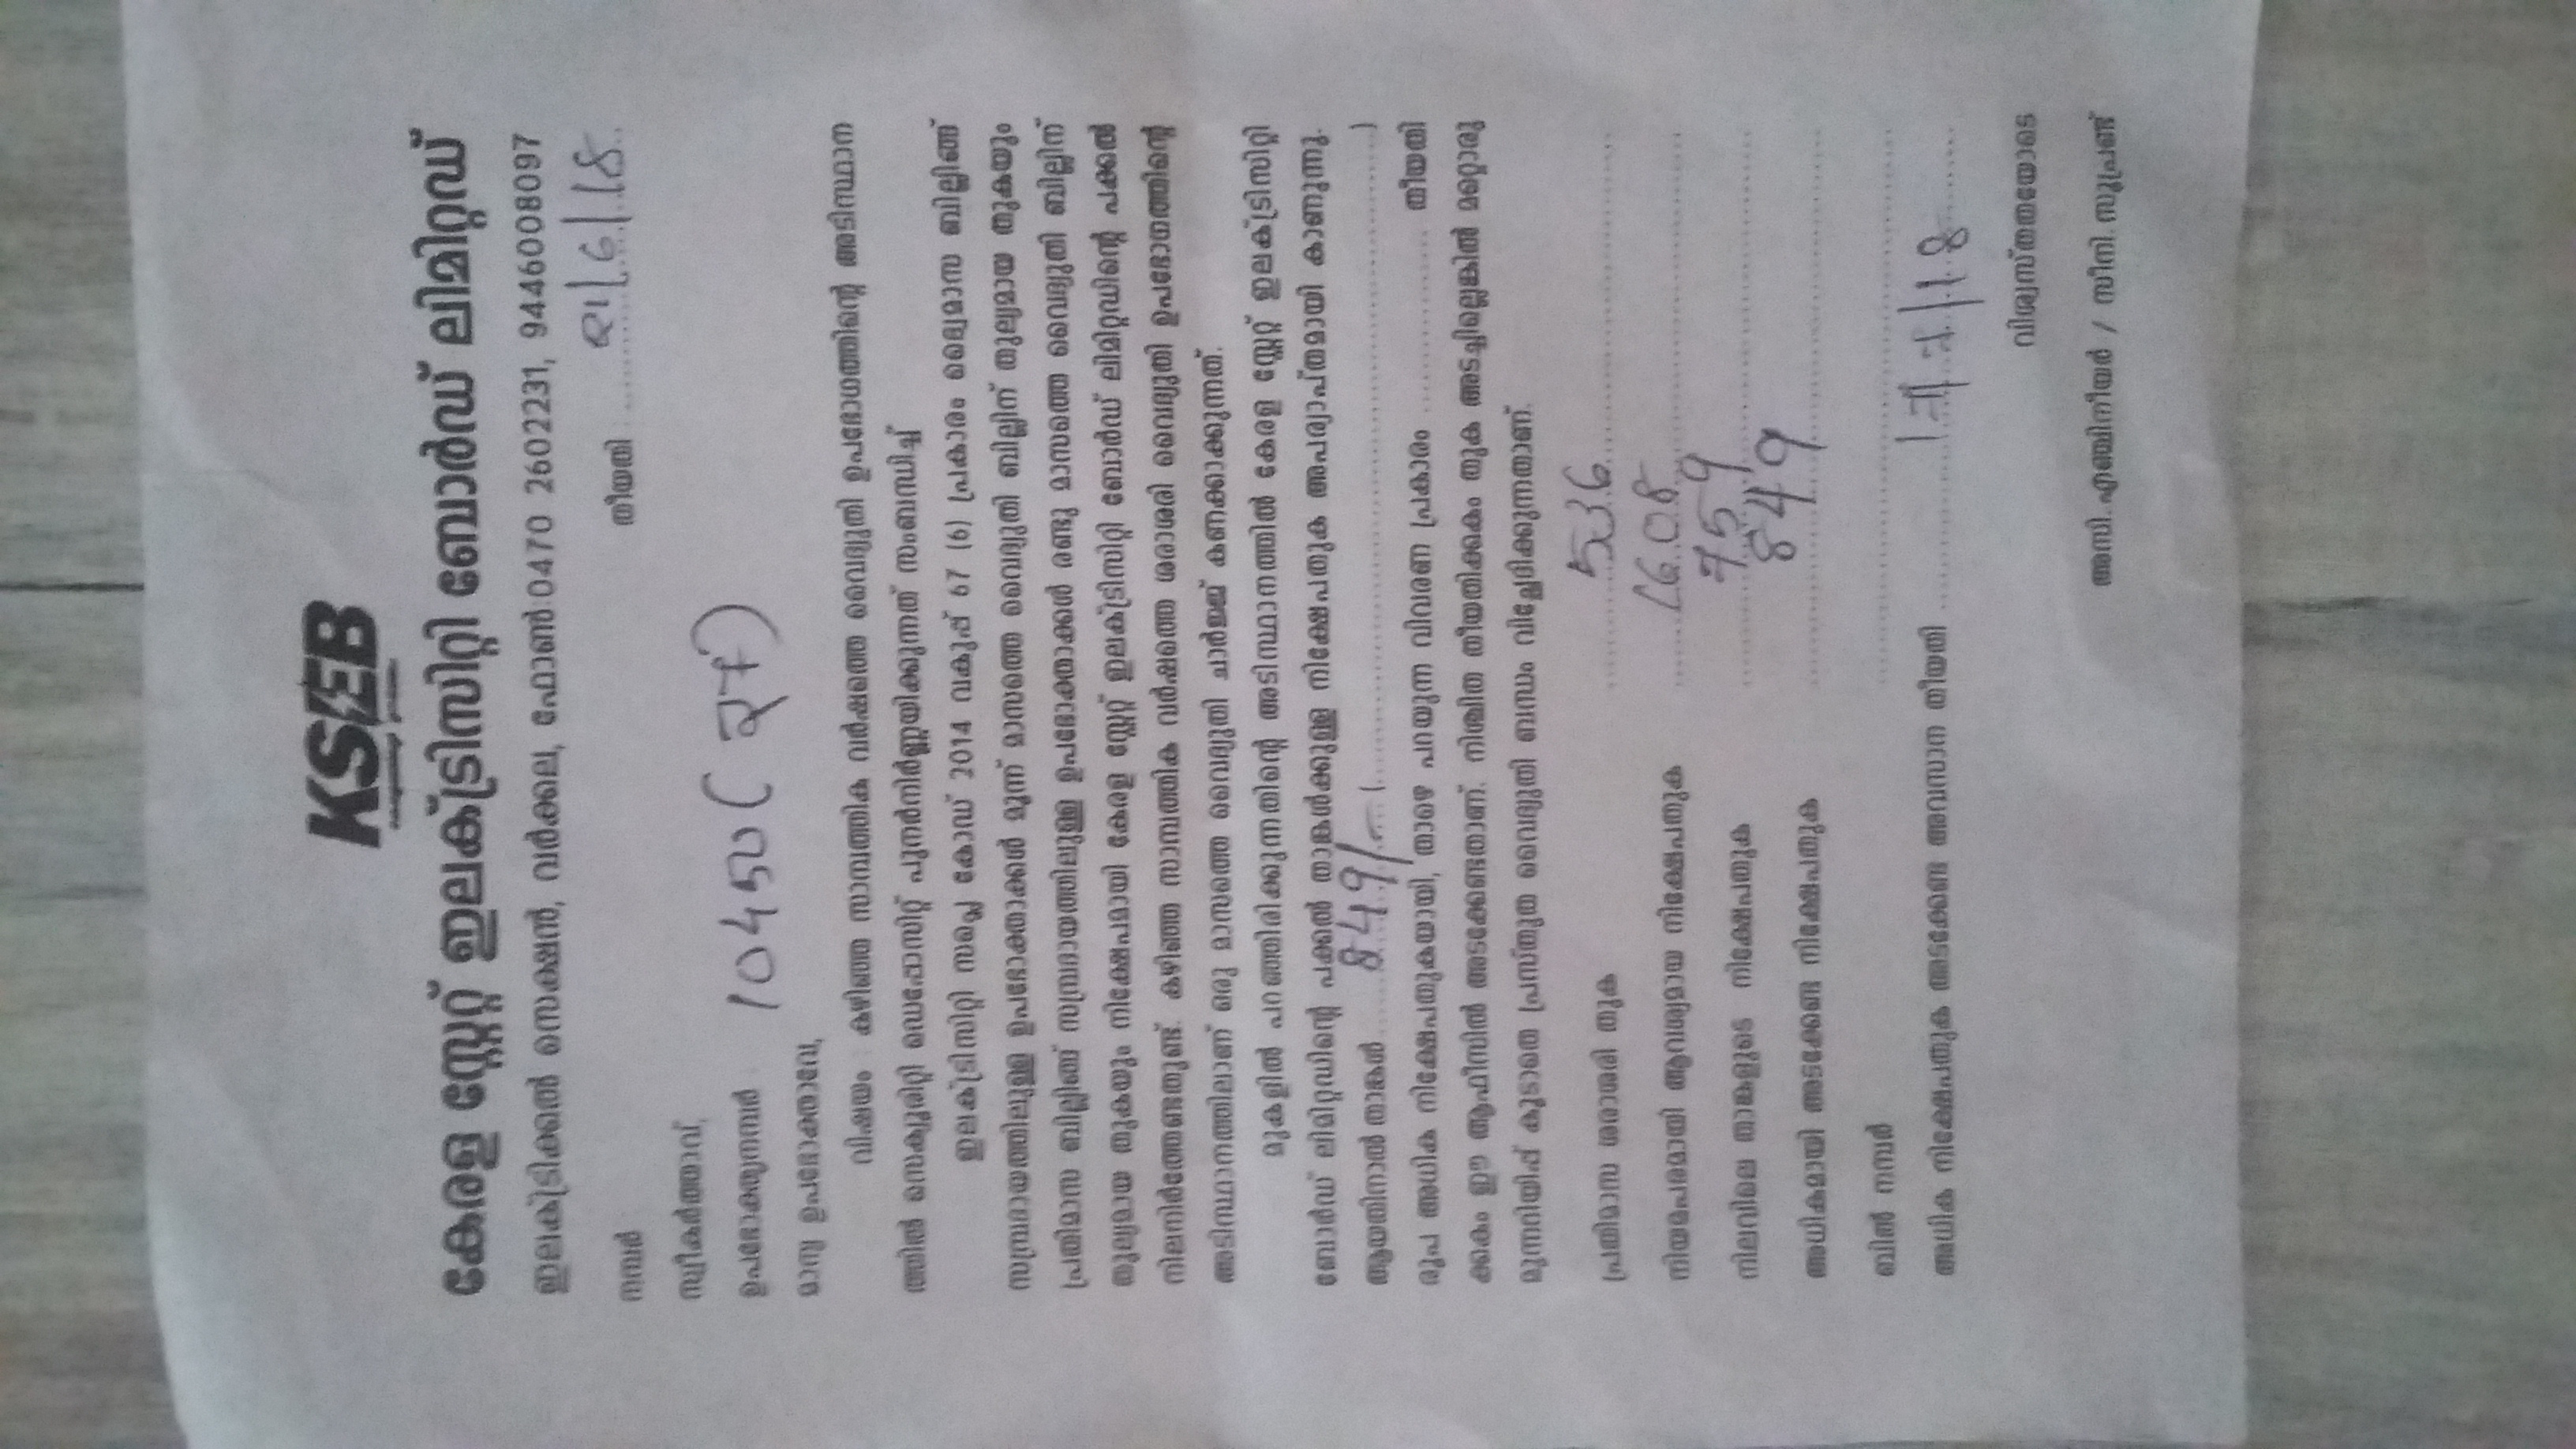 KSEB
കേരള സ്റ്റേറ്റ് ഇലക്ട്രിസിറ്റി ബോർഡ് ലിമിറ്റഡ്
ഇലക്ട്രിക്കൽ സെക്ഷൻ, വർക്കല, ഫോൺ:0470 2602231, 9446008097
നമ്പർ തീയതി 21/6/18
സ്വീകർത്താവ്,
ഉപഭോക്തൃനമ്പർ 10450 (27)
മാന്യ ഉപഭോക്താവേ,
വിഷയം : കഴിഞ്ഞ സാമ്പത്തിക വർഷത്തെ വൈദ്യുതി ഉപഭോഗത്തിന്റെ അടിസ്ഥാന
ത്തിൽ സെക്യൂരിറ്റി ഡെപ്പോസിറ്റ് പുനർനിർണ്ണയിക്കുന്നത് സംബന്ധിച്ച്
ഇലക്ട്രിസിറ്റി സപ്ലൈ കോഡ് 2014 വകുപ്പ് 67 (6) പ്രകാരം ദ്വൈമാസ ബില്ലിങ്ങ്
സമ്പ്രദായത്തിലുള്ള ഉപഭോക്താക്കൾ മൂന്ന് മാസത്തെ വൈദ്യുതി ബില്ലിന് തുല്യമായ തുകയും
പ്രതിമാസ ബില്ലിങ്ങ് സമ്പ്രദായത്തിലുള്ള ഉപഭോക്താക്കൾ രണ്ടു മാസത്തെ വൈദ്യുതി ബില്ലിന്
തുല്യമായ തുകയും നിക്ഷേപമായി കേരള സ്റ്റേറ്റ് ഇലക്ട്രിസിറ്റി ബോർഡ് ലിമിറ്റഡിന്റെ പക്കൽ
നിലനിർത്തേണ്ടതുണ്ട്. കഴിഞ്ഞ സാമ്പത്തിക വർഷത്തെ ശരാശരി വൈദ്യുതി ഉപഭോഗത്തിന്റെ
അടിസ്ഥാനത്തിലാണ് ഒരു മാസത്തെ വൈദ്യുതി ചാർജ്ജ് കണക്കാക്കുന്നത്.
മുകളിൽ പറഞ്ഞിരിക്കുന്നതിന്റെ അടിസ്ഥാനത്തിൽ കേരള സ്റ്റേറ്റ് ഇലക്ട്രിസിറ്റി
ബോർഡ് ലിമിറ്റഡിന്റെ പക്കൽ താങ്കൾക്കുള്ള നിക്ഷേപതുക അപര്യാപ്തമായി കാണുന്നു.
ആയതിനാൽ താങ്കൾ 849/- (..........)
രൂപ അധിക നിക്ഷേപതുകയായി, താഴെ പറയുന്ന വിവരണ പ്രകാരം .......... തീയതി
ക്കകം ഈ ആഫീസിൽ അടക്കേണ്ടതാണ്. നിശ്ചിത തീയതിക്കകം തുക അടച്ചില്ലെങ്കിൽ മറ്റൊരു
മുന്നറിയിപ്പ് കൂടാതെ പ്രസ്തുത വൈദ്യുതി ബന്ധം വിച്ഛേദിക്കുന്നതാണ്.
പ്രതിമാസ ശരാശരി തുക 536
നിയമപരമായി ആവശ്യമായ നിക്ഷേപതുക 1608
നിലവിലെ താങ്കളുടെ നിക്ഷേപതുക 759
അധികമായി അടക്കേണ്ട നിക്ഷേപതുക 849
ബിൽ നമ്പർ
അധിക നിക്ഷേപതുക അടക്കേണ്ട അവസാന തീയതി 17/7/18
വിശ്വസ്തതയോടെ
അസി. എഞ്ചിനീയർ / സീനി. സൂപ്രണ്ട്